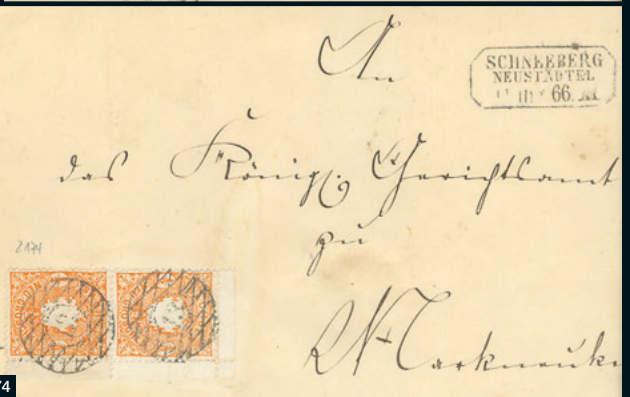 An
SCHNEEBERG
NEUSTÄDTEL
III 66
das Königl. Gerichtsamt
zu
Markneuk
2174
74